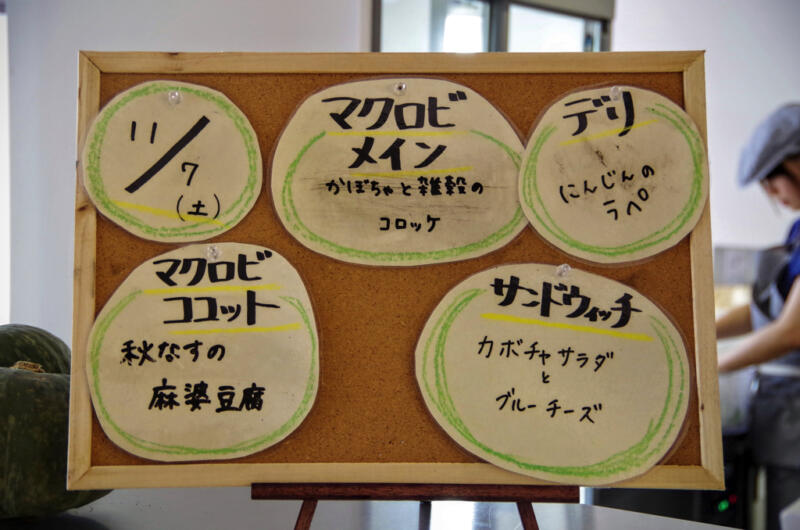 11/7
(土)
マクロビ
メイン
かぼちゃと雑穀の
コロッケ
デリ
にんじんの
ラペ
マクロビ
ココット
秋なすの
麻婆豆腐
サンドウィッチ
カボチャサラダ
と
ブルーチーズ